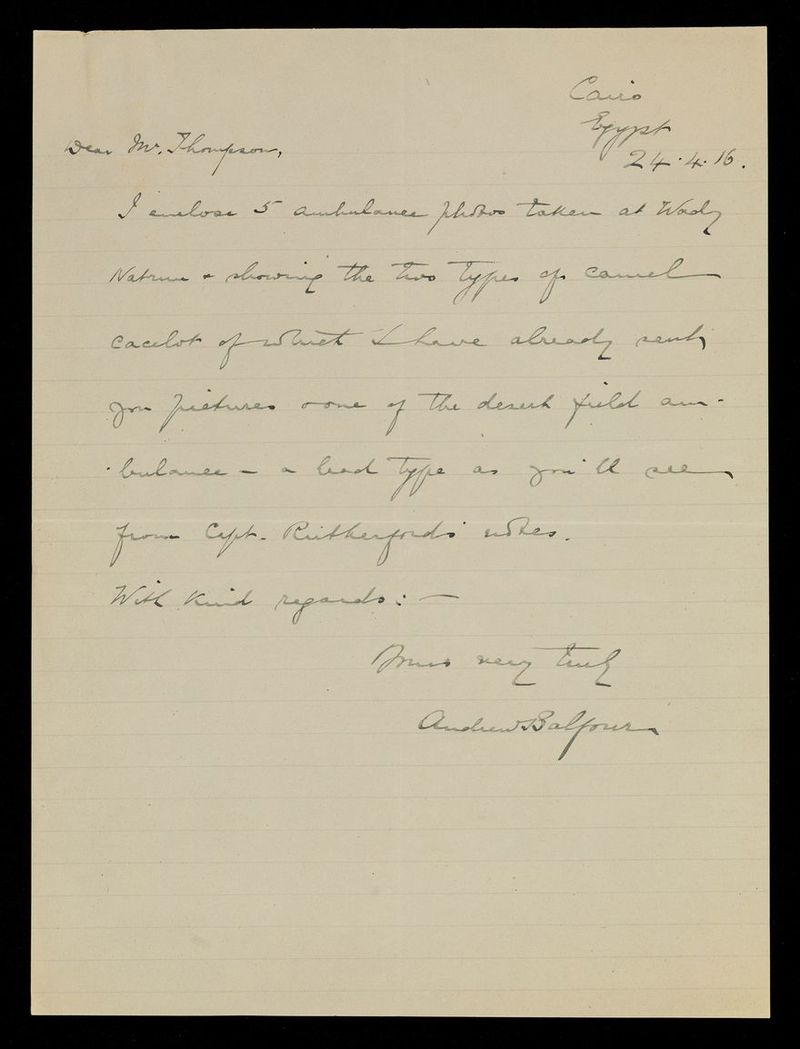 Cairo
Egypt
24.4.16.
Dear Mr. Thompson,
I enclose 5 ambulance photos taken at Wady
Natrun & showing the two types of camel
cacolet of which I have already sent
you pictures & one of the desert field am-
bulance – a bad type as you'll see
from Capt. Rutherford's notes.
With kind regards: —
Yours very truly
Andrew Balfour